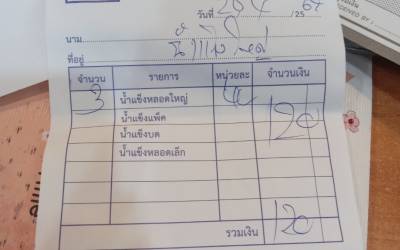 วันที่ 20 /25 67
นาม
ที่อยู่
จำนวน รายการ หน่วยละ จำนวนเงิน
3 น้ำแข็งหลอดใหญ่ 120
น้ำแข็งแพ็ค
น้ำแข็งบด
น้ำแข็งหลอดเล็ก
รวมเงิน 120